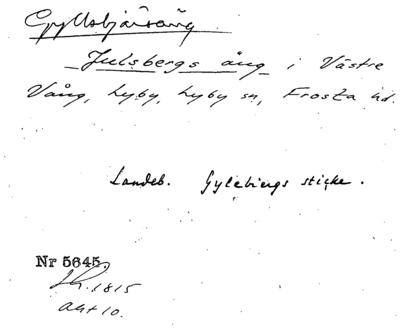 Gyllsbjärsäng
Julsbergs äng i Västre
Vång, Lyby, Lyby sn, Frosta hd.
Landeb. Gylebiergs sticke.
Nr 5645.
1815
akt 10.